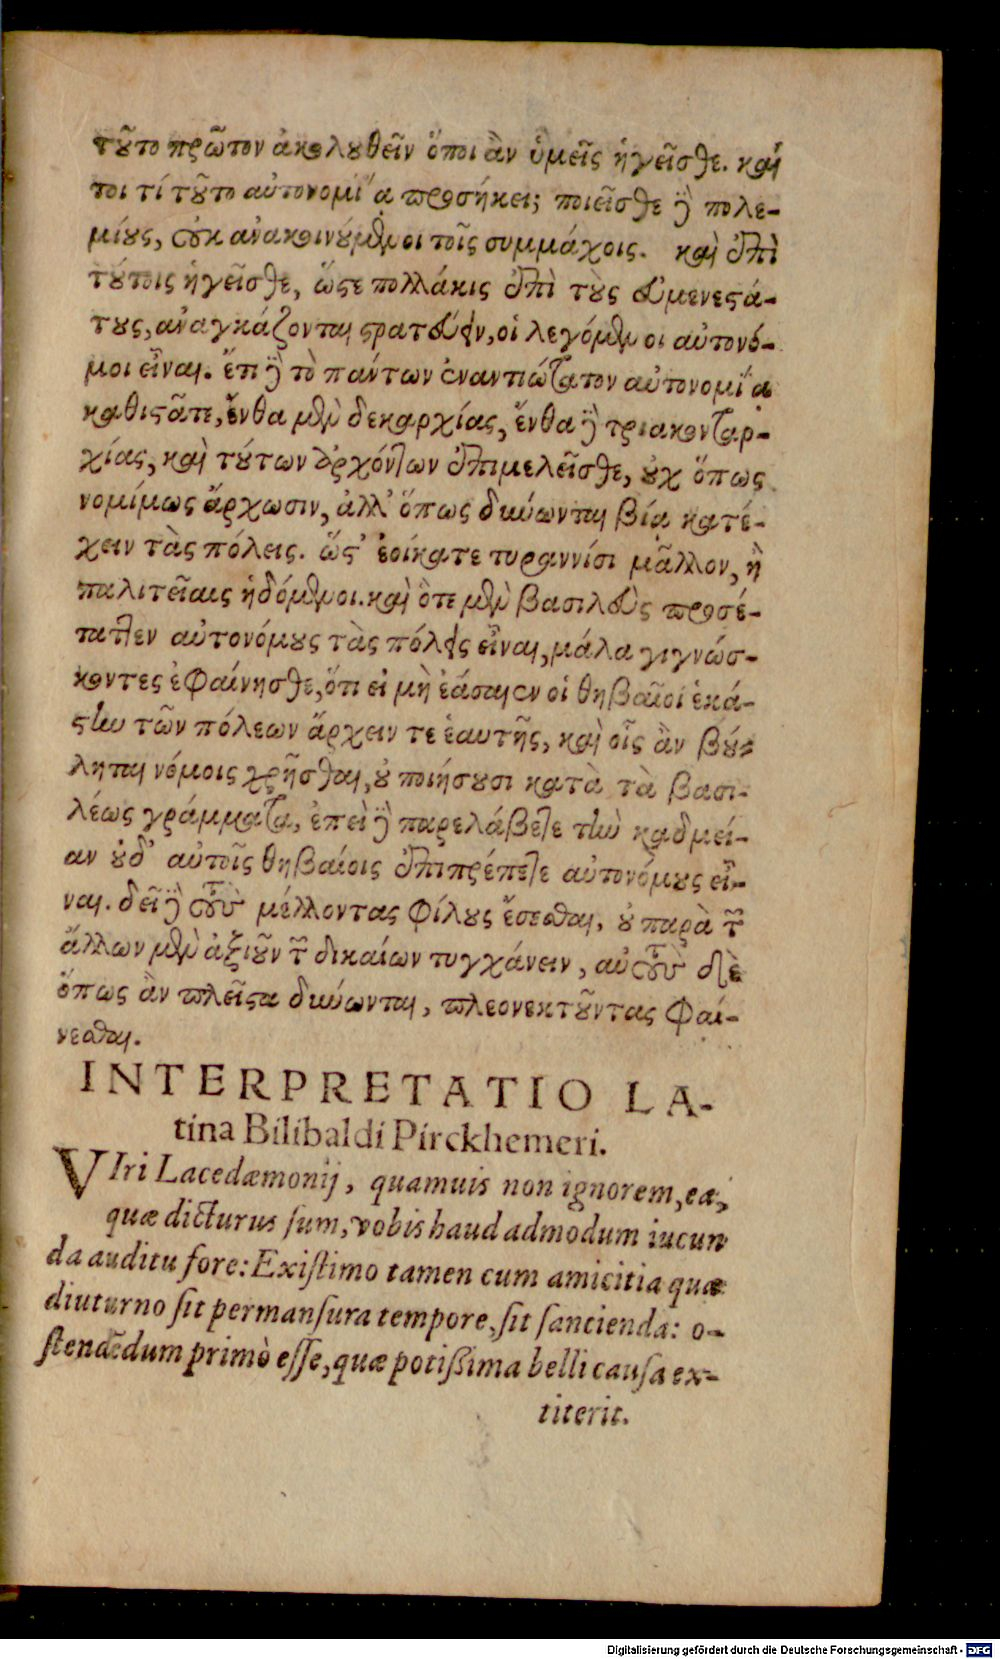 τοῦτο πρῶτον ἀκολουθεῖν ὅποι ἂν ὑμεῖς ἡγεῖσθε. καί
τοι τί τοῦτο αὐτονομίᾳ προσήκει; ποιεῖσθε δὲ πολε-
μίους, οὐκ ἀνακοινούμενοι τοῖς συμμάχοις. καὶ ἐπὶ
τούτοις ἡγεῖσθε, ὥστε πολλάκις ἐπὶ τοὺς εὐμενεστά-
τους, ἀναγκάζονται στρατεύειν, οἱ λεγόμενοι αὐτονό-
μοι εἶναι. ἔτι δὲ τὸ πάντων ἐναντιώτατον αὐτονομίᾳ
καθιστᾶτε, ἔνθα μὲν δεκαρχίας, ἔνθα δὲ τριακονταρ-
χίας, καὶ τούτων ἀρχόντων ἐπιμελεῖσθε, οὐχ ὅπως
νομίμως ἄρχωσιν, ἀλλ' ὅπως δύνωνται βίᾳ κατέ-
χειν τὰς πόλεις. ὥστ' ἐοίκατε τυραννίσι μᾶλλον, ἢ
παλιτείαις ἡδόμενοι. καὶ ὅτε μὲν βασιλεὺς προσέ-
ταττεν αὐτονόμους τὰς πόλεις εἶναι, μάλα γιγνώσ-
κοντες ἐφαίνησθε, ὅτι εἰ μὴ ἐάσαιεν οἱ θηβαῖοι ἑκά-
στην τῶν πόλεων ἄρχειν τε ἑαυτῆς, καὶ οἷς ἂν βού-
ληται νόμοις χρῆσθαι, οὐ ποιήσουσι κατὰ τὰ βασι-
λέως γράμματα, ἐπεὶ δὲ παρελάβετε τὴν καδμεί-
αν οὐδ' αὐτοῖς θηβαίοις ἐπιτρέπετε αὐτονόμους εἶ-
ναι. δεῖ δὲ τοὺς μέλλοντας φίλους ἔσεσθαι, οὐ παρὰ τῶν
ἄλλων μὲν ἀξιοῦν τῶν δικαίων τυγχάνειν, αὐτοὺς δὲ
ὅπως ἂν πλεῖστα δύνωνται, πλεονεκτοῦντας φαί-
νεσθαι.
INTERPRETATIO LA-
tina Bilibaldi Pirckhemeri.
VIri Lacedæmonij, quamuis non ignorem, ea,
quæ dicturus sum, vobis haud admodum iucun
da auditu fore: Existimo tamen cum amicitia quæ
diuturno sit permansura tempore, sit sancienda: o-
stendēdum primò esse, quæ potißima belli causa ex-
titerit.
Digitalisierung gefördert durch die Deutsche Forschungsgemeinschaft - DFG